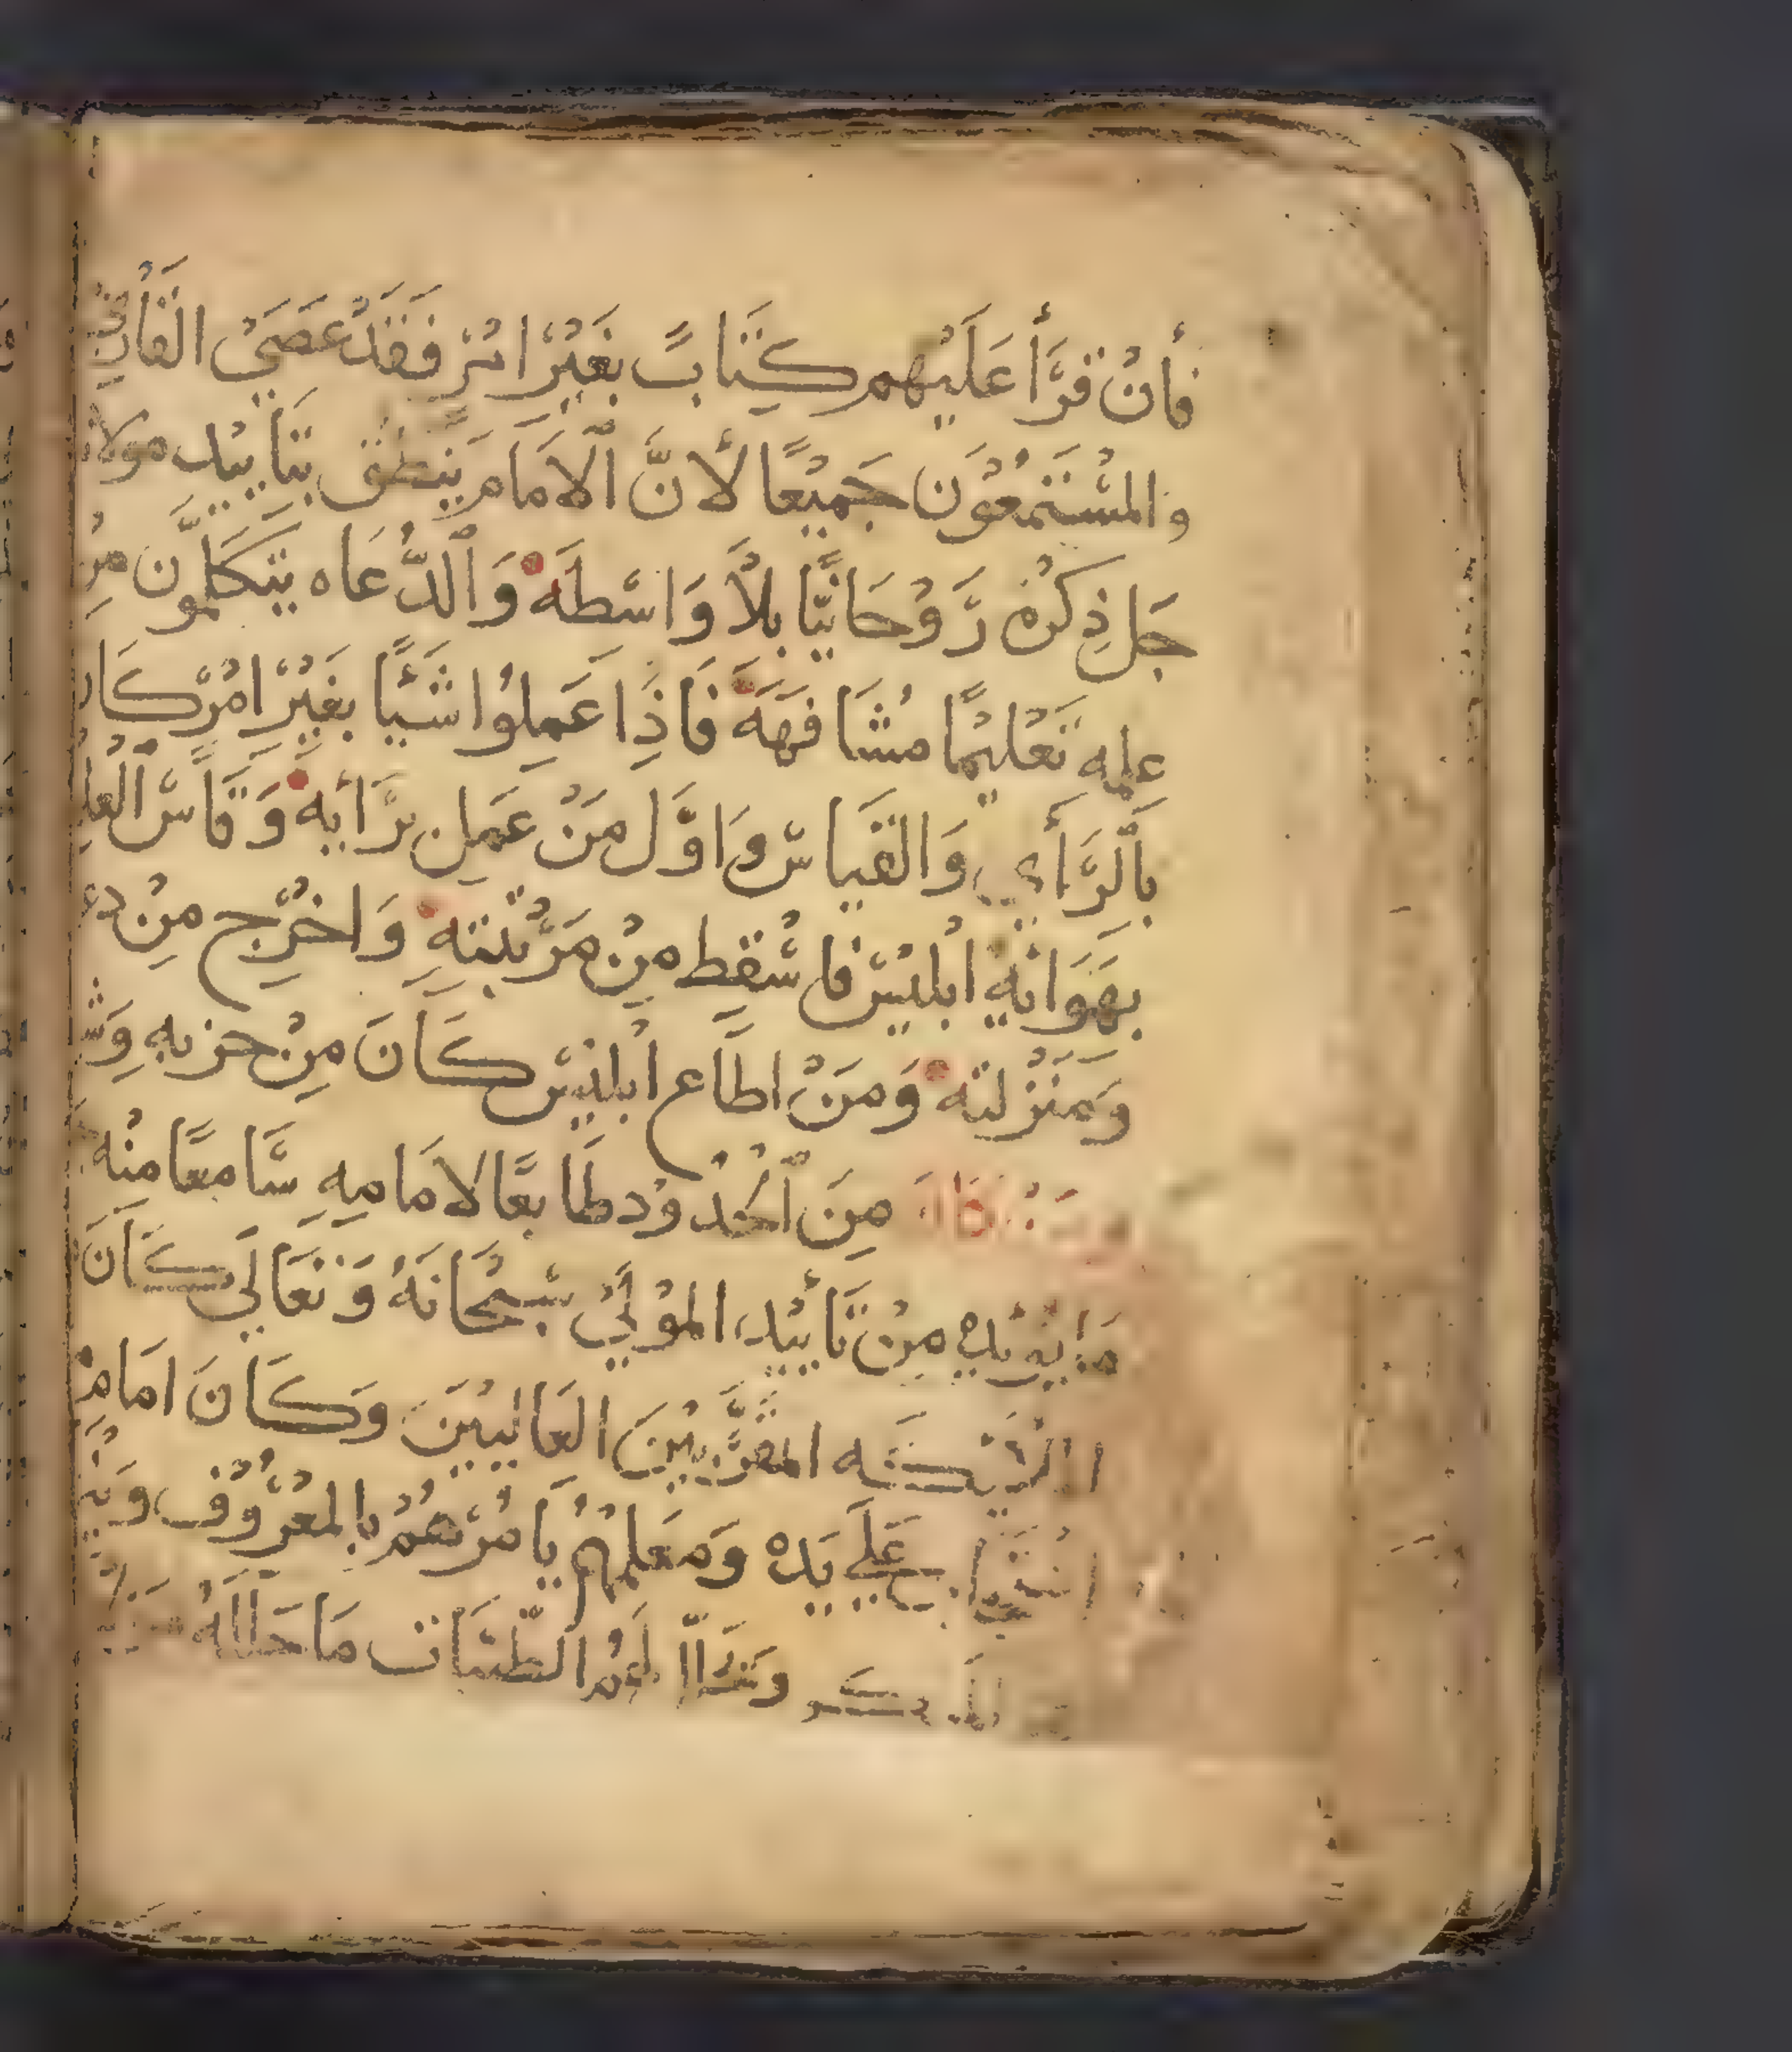 فَأنْ قَرَّأ عَلَيْهِم كِتَابً بغَيْرْ امْر فَقَدْ عَصَيْ القَاْرِي
وَالمسْتَمعُوَن جَمِيْعًا لأنَّ الاِمَام يَنطِق بتَأييْد مولانا
جَل ذِكْرُه رَّوْحَانيًّا بلاَّ وَاسْطَه وَالدُّعَاه يتكَلَّموَن مِن
عليه تَعْليْمًا مُشَافهَهَ فَاذَِا عَمِلوُا شَيْئًا بغَيْرْ امْرْ كَان
بِالرَّأي وَالقيَاسْ وَاوَّل مَنْ عَمِل برَّأيهِ وَقَاسّْ
بهَوَائهِ ابْليْسْ فاسْقِط مِنْ مَرْتبَتهِ وَاخرْج مِنْ
وَمَنْزلتَه وَمَنْ اطَاع ابْليْسْ كَانَ مِنْ حزبهِ
وَمَنْ كَانَ مِنَ الحُدوْد طَايعًا لامَامِهِ سَّامعًا مِنْه
مَا يؤيْدهِ مِنْ تَأييْد المَوْليْ سْبحْانَهُ وَتعَاليَ كَانَ
المقرَّبيْنَ العَالييْنَ وَكَانَ امَام
عَليَ يَدهْ وَمَعَلمهُمْ يَامُرْهُمْ بالمعْرُوْف
المنكَر وَيحَلّ لهُمْ الطّيبَات مَا حَللَهُ